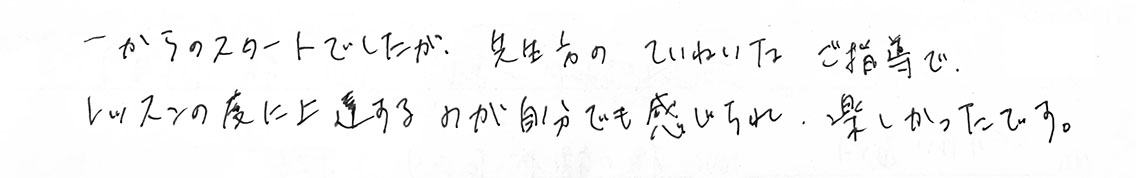 一からのスタートでしたが、先生方の ていねいな ご指導で、
レッスンの度に上達するのが自分でも感じられ、楽しかったです。